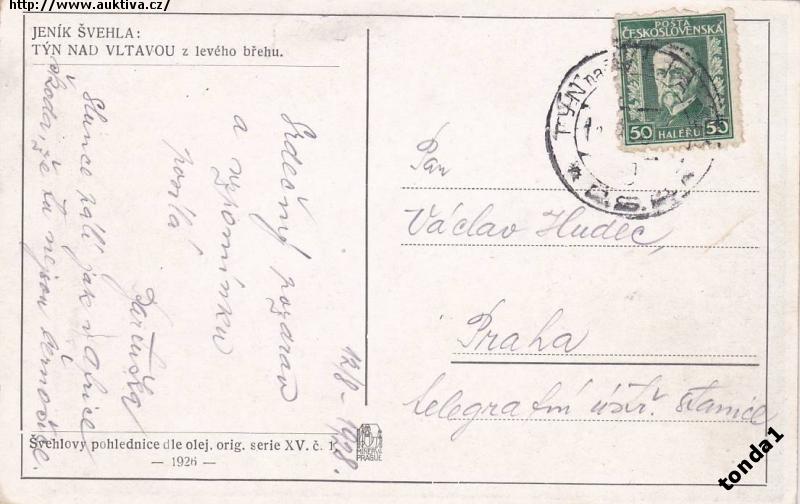 http://www.auktiva.cz/
JENÍK ŠVEHLA:
TÝN NAD VLTAVOU z levého břehu.
Srdečný pozdrav
a vzpomínku
posílá
Jaruška
12/8 1928.
Slunce pálí jak v Africe
škoda, že tu nejsou černošce.
POSTA
ČESKOSLOVENSKÁ
50 HALÉŘŮ 50
TÝN
Č.S.R.
Pan
Václav Hudec,
Praha
telegrafní ústř. stanice
Švehlovy pohlednice dle olej. orig. serie XV. č. 1.
— 1926 —
MINERVA
PRAGUE
tonda1